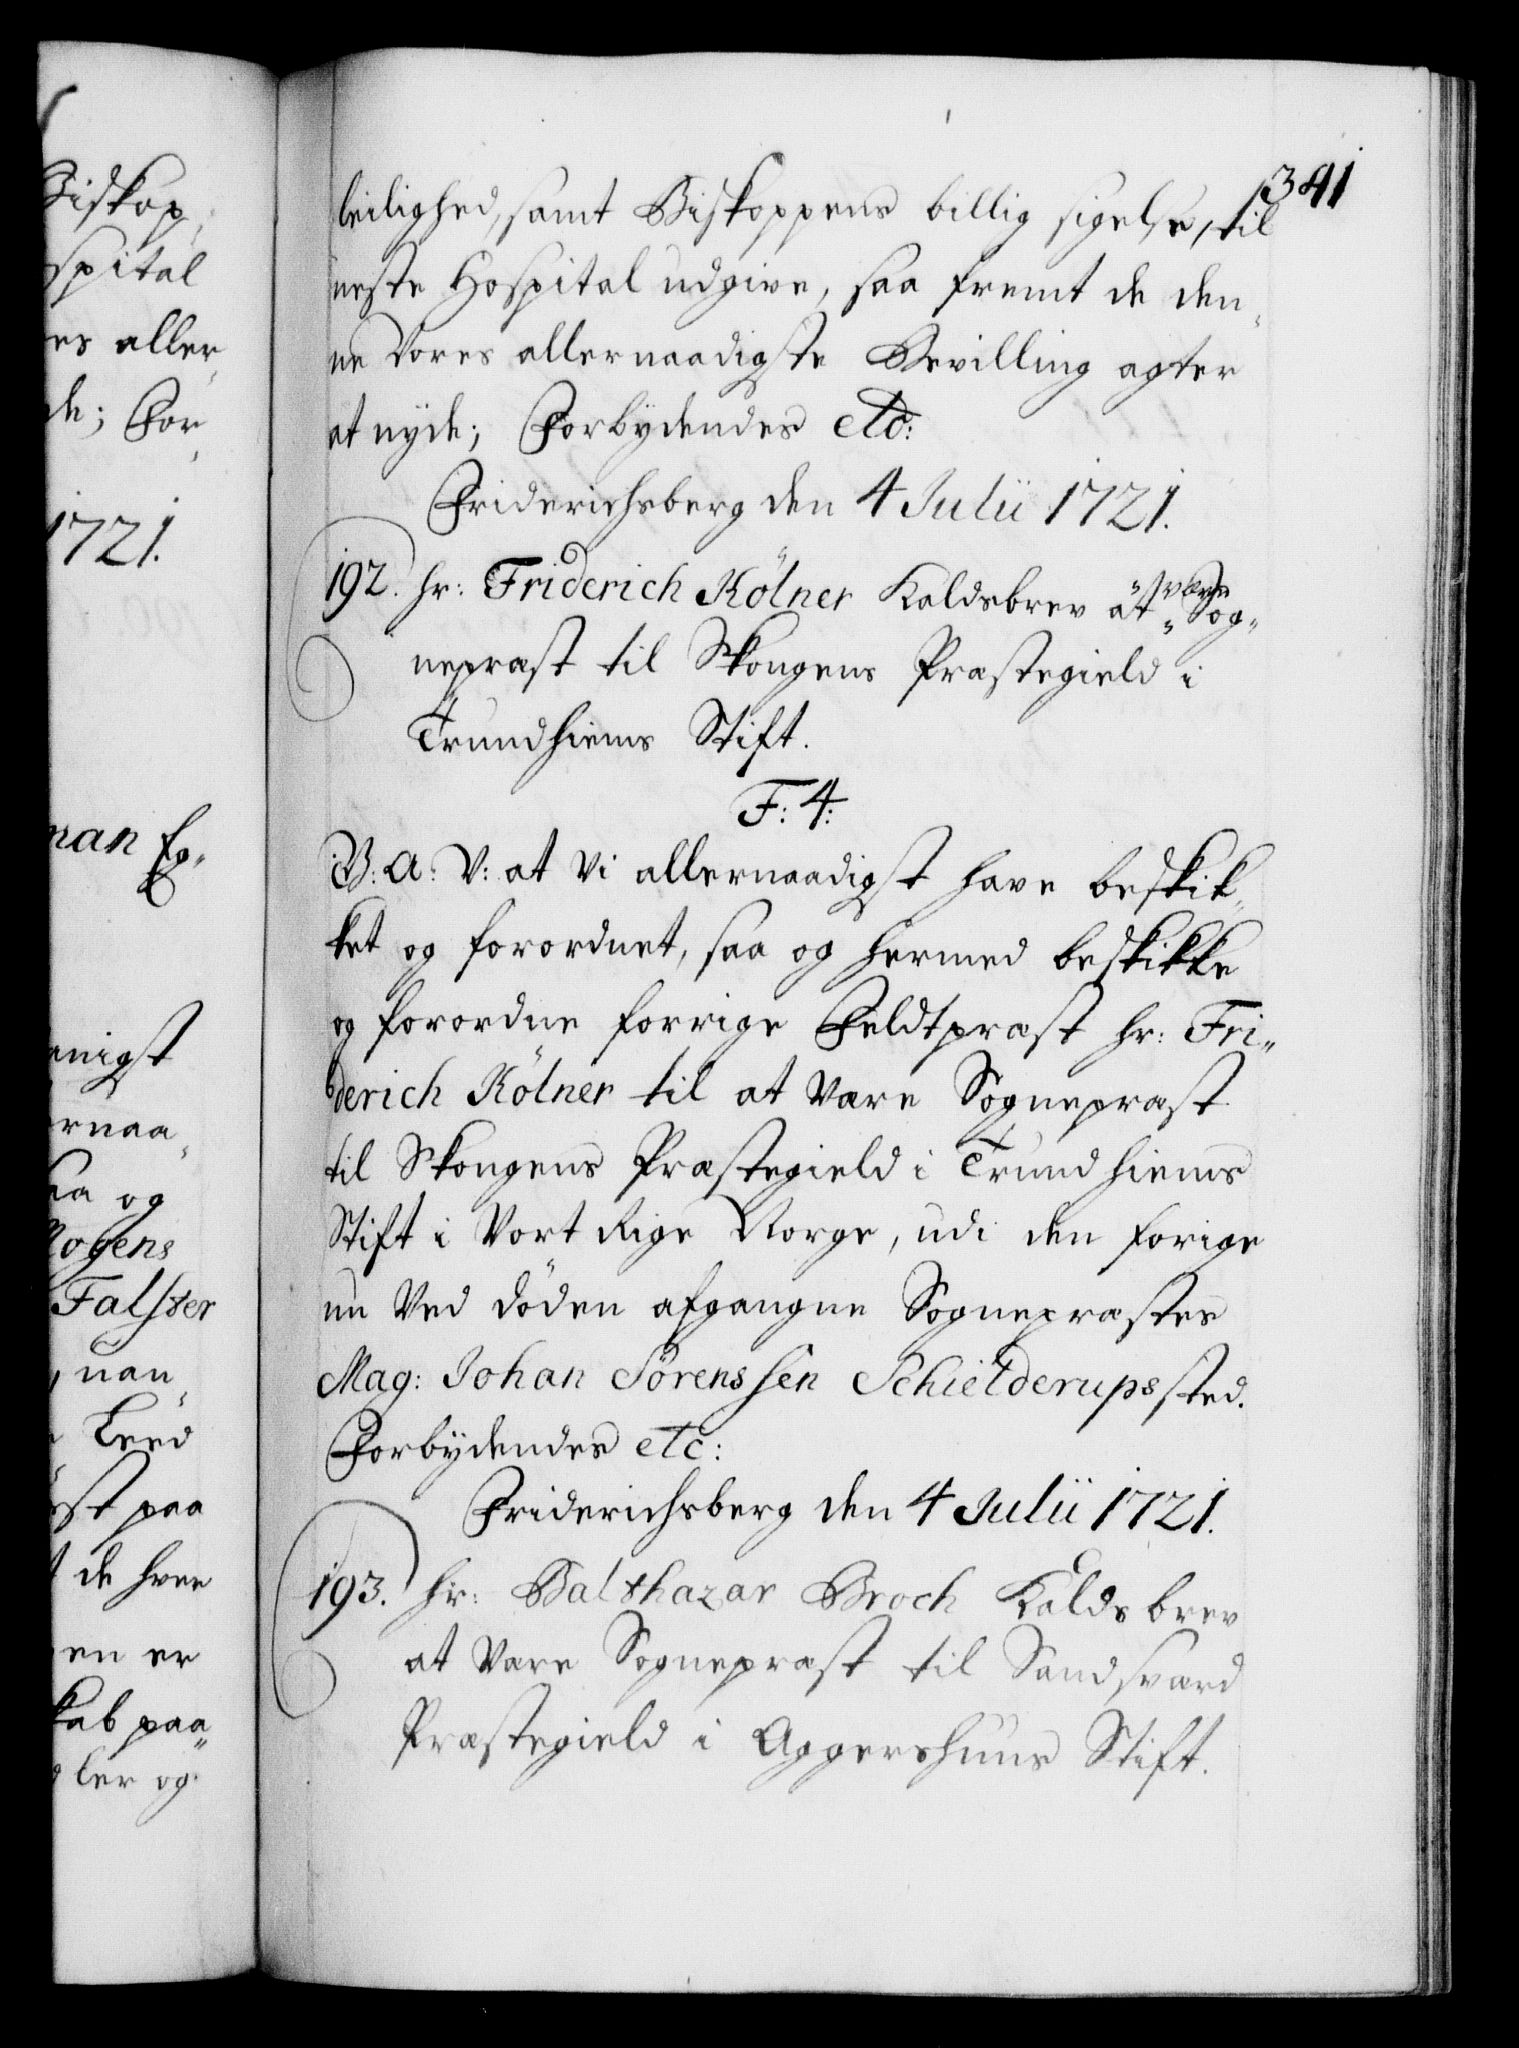 Biskop,
spital
es aller„
de; For„
1721.
man Eg„
enigst
ernaa„
aa og
Mogens
Falster
, nan„
Leed
st paa
de hver
en er
kab paa„
ler og
341
leilighed, samt Biskoppens billig sigelse, til
neste Hospital udgive, saa fremt de den„
ne Vores allernaadigste Bevilling agter
at nyde; Forbydendes etc:
Friderichsberg den 4 Julii 1721.
192. hr: Friderich Kölner Kaldsbrev at være Sog„
nepræst til Skongens Præstegield i
Trundhiems Stift.
F: 4:
V: A: V: at Vi allernaadigst have beskik„
ket og forordnet, saa og hermed beskikke
og forordne forrige Feldtpræst hr: Fri„
derich Kölner til at være Sognepræst
til Skongens Præstegield i Trundhiems
Stift i Vort Rige Norge, udi den forige
nu Ved döden afgangne Sognepræstes
Mag: Johan Sörenssen Schielderups sted.
Forbydendes etc:
Friderichsberg den 4 Julii 1721.
193. hr: Balthazar Broch Kaldsbrev
at være Sognepræst til Sandsværd
Præstegield i Aggershuus Stift.